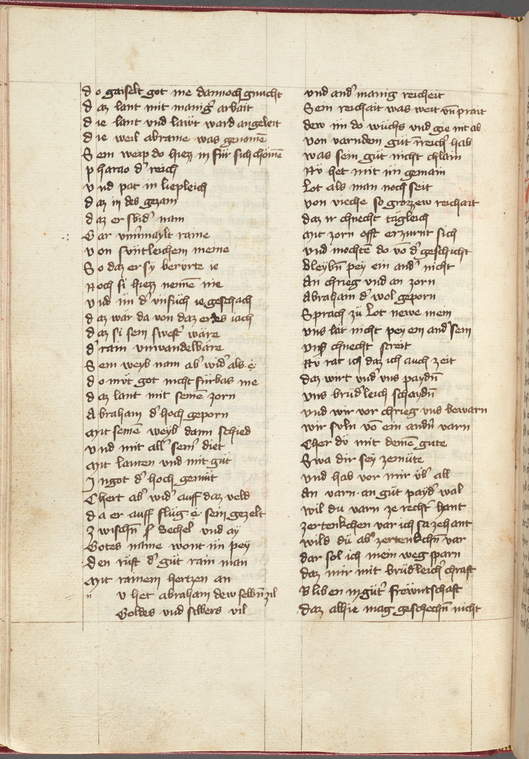 do gaiselt got me dannoch gnucht
daz lant mit manig' arbait
die lant und lawt ward angeleit
die weil abrame was genomē
Sein weip do hiez in für sich chomē
pharao d' reich
und pat in liepleich
daz in des gezam
daz er sw'd' nam
Gar unvmaylt raine
von süntleichem meine
So daz er sy berurte ie
Noch si hiez nemē nie
und im d' unfuch ie geschach
daz war da von daz er iach
daz si sein swest' wäre
d' rain unwandelbäre
Sein weyb nam ab' wid' als e
do mit got nicht fürbas me
daz lant mit seinē zorn
Abraham d' hoch geporn
Mit seinem weyb dann schied
und mit all' sein' diet
Mit lauten und mit gut
In got d' hoch gemut
Chert ab' wid' auff daz veld
da er auff slug e sein gezelt
Zwischn Sechel und ay
Gotes name wont im pey
den rüft d' gut rain man
Mit rainem hertzen an
Nu het abraham dew selbn zil
Goldes und silbers vil
und and' manig reicheit
Sein reichait was weit un prait
dew im do wuchs und gie mt ab
von varndem gut reich hab
was sein gut nicht chlain
Ny het mit im gemain
Lot als man noch seit
von vieche so grozew reichait
daz ir chnecht tägleich
Mit zorn offt erzurnt sich
und mochtē do vo d' geschicht
Bleybn pey ein and' nicht
An chrieg und an zorn
Abraham d' wol geporn
Sprach zu Lot newe mein
uns lat nicht pey ein and' sein
uns' chnecht streit
Ny rat ich daz ich auch zeit
daz wirt und uns paydn
uns brüd'leich schaydn
und wir vor chrieg uns bewarn
wir suln vo ein andn varn
Cher du mit deinē gute
Swa dir sey zemute
und hab vor mir üb' all
An varn an gut payd' wal
wil du varn ze recht' hant
zertenkchen var ich sazehant
wild du ab' zertenkchn var
dar sol ich mein weg sparn
daz mir mit brüdleich' chraft
Bliben in gut' frewntschaft
daz alhie mag geschechn nicht